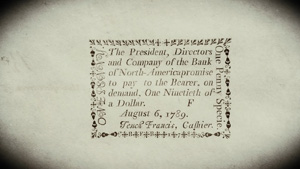 The President, Directors
and Company of the Bank
of North-America promise
to pay to the Bearer, on
demand, One Ninetieth of
a Dollar. F
August 6, 1789.
Tench Francis, Cashier.
One Penny Specie.